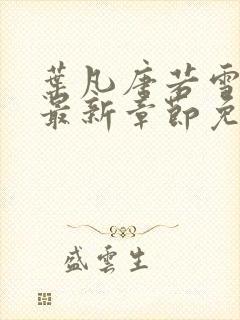 葉凡唐若雪
最新章節免
盛雲生